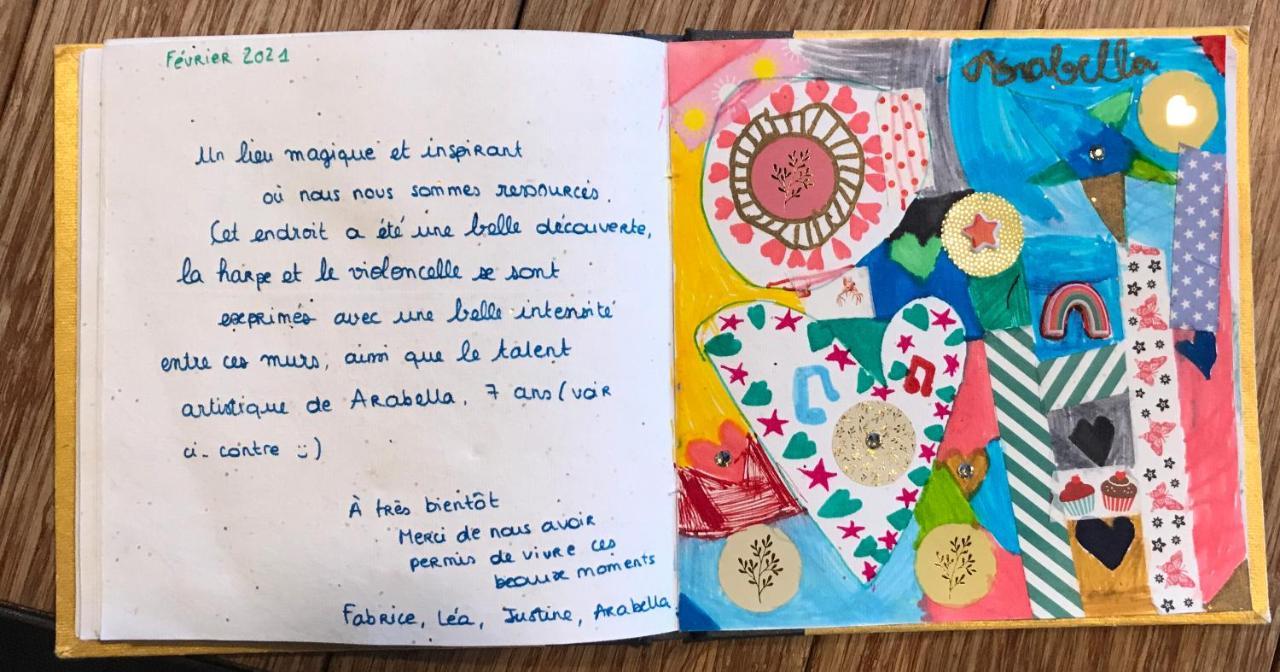 Février 2021
Un lieu magique et inspirant
où nous nous sommes ressourcés.
Cet endroit a été une belle découverte,
la harpe et le violoncelle se sont
exprimés avec une belle intensité
entre ces murs, ainsi que le talent
artistique de Arabella, 7 ans (voir
ci-contre :)
À très bientôt
Merci de nous avoir
permis de vivre ces
beaux moments
Fabrice, Léa, Justine, Arabella
Arabella